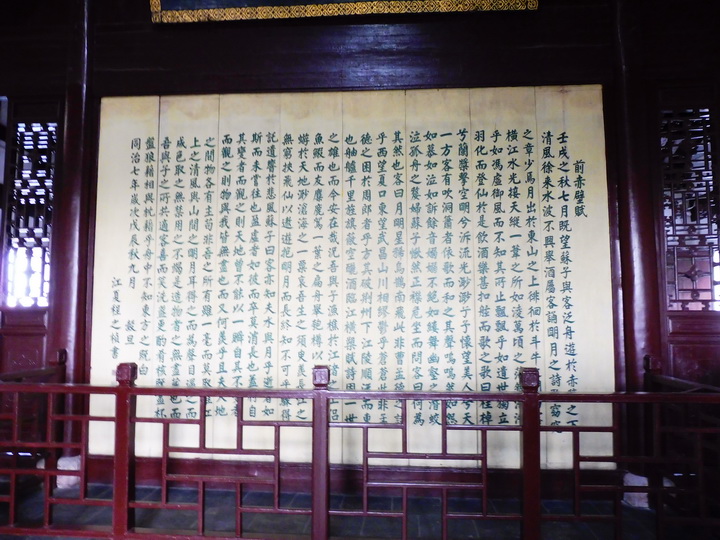 前赤壁賦
壬戌之秋七月既望蘇子與客泛舟遊於赤壁之下
清風徐來水波不興舉酒屬客誦明月之詩歌窈窕
之章少焉月出於東山之上徘徊於斗牛
橫江水光接天縱一葦之所如凌萬頃之茫然浩浩
乎如馮虛御風而不知其所止飄飄乎如遺世獨立
羽化而登仙於是飲酒樂甚扣舷而歌之歌曰桂棹
兮蘭槳擊空明兮泝流光渺渺兮予懷望美人兮天
一方客有吹洞簫者依歌而和之其聲嗚嗚然如怨
如慕如泣如訴餘音嫋嫋不絕如縷舞幽壑之潛蛟
泣孤舟之嫠婦蘇子愀然正襟危坐而問客曰何為
其然也客曰月明星稀烏鵲南飛此非曹孟德之詩
乎西望夏口東望武昌山川相繆鬱乎蒼蒼此非孟
德之困於周郎者乎方其破荊州下江陵順流而東
也舳艫千里旌旗蔽空釃酒臨江橫槊賦詩固一世
之雄也而今安在哉況吾與子漁樵於江渚侶
魚鰕而友麋鹿駕一葉之扁舟舉匏樽以
蝣於天地渺滄海之一粟哀吾生之須臾羨長江之
無窮挾飛仙以遨遊抱明月而長終知不可乎驟得
託遺響於悲風蘇子曰客亦知夫水與月乎逝者如
斯而未嘗往也盈虛者如彼而卒莫消長也蓋將自
其變者而觀之則天地曾不能以一瞬自其不變者
而觀之則物與我皆無盡也而又何羨乎且夫天地
之間物各有主苟非吾之所有雖一毫而莫取惟江
上之清風與山間之明月耳得之而為聲目遇之而
成色取之無禁用之不竭是造物者之無盡藏也而
吾與子之所共適客喜而笑洗盞更酌肴核既盡杯
盤狼藉相與枕藉乎舟中不知東方之既白
同治七年歲次戊辰秋九月 穀旦
江夏程之楨書